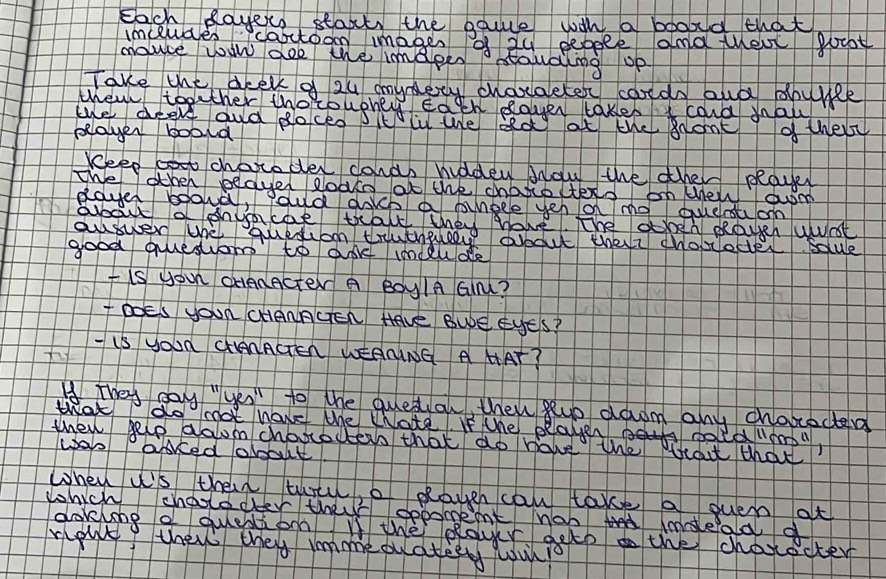 Each players starts the game with a board that
includes cartoon images of 24 people and their first
name with all the images standing up
Take the deck of 24 mystery character cards and shuffle
them together thoroughly Each player takes 1 card from
the deck and places it in the slot at the front of their
player board
Keep character cards hidden from the other player
The other player looks at the characters on their own
player board, and asks a single yes or no question
about a physical trait they have The other player must
answer the question truthfully about their character some
good questions to ask include
- IS YOUR CHARACTER A BOY/A GIRL?
- DOES YOUR CHARACTER HAVE BLUE EYES?
- IS YOUR CHARACTER WEARING A HAT?
If They say "yes" to the question, then flip down any characters
that do not have the trate. If the player said "no",
then flip down characters that do have the trait that
was asked about.
When it's their turn, a player can take a guess at
which character their opponent has instead of
asking a question If the player gets the character
right, then they immediately win!